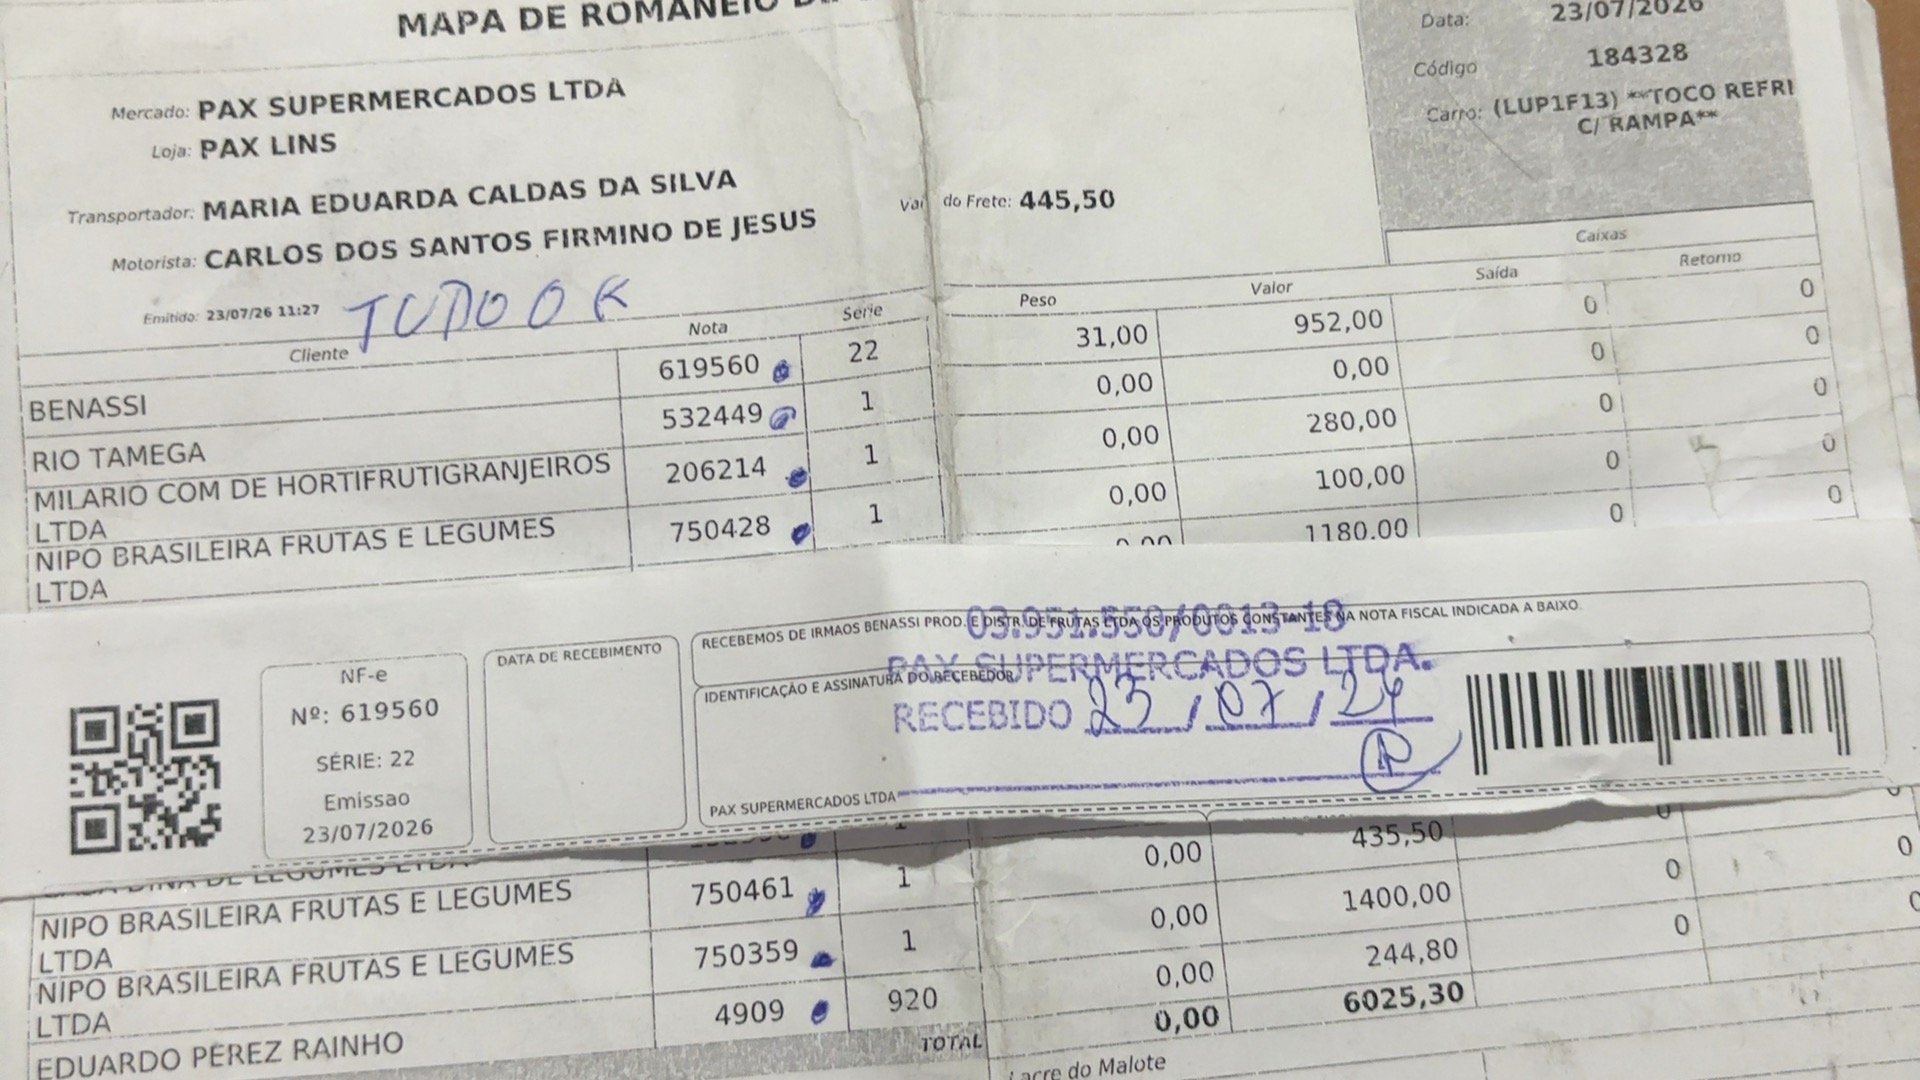 MAPA DE ROMANEIO
Data: 23/07/2026
Código 184328
Carro: (LUP1F13) **TOCO REFRI
C/ RAMPA**
Mercado: PAX SUPERMERCADOS LTDA
Loja: PAX LINS
Transportador: MARIA EDUARDA CALDAS DA SILVA
Motorista: CARLOS DOS SANTOS FIRMINO DE JESUS
do Frete: 445,50
Emitido: 23/07/26 11:27 TUDO OK
Caixas
Cliente Nota Série Peso Valor Saída Retorno
BENASSI 619560 22 31,00 952,00 0 0
RIO TAMEGA 532449 1 0,00 0,00 0 0
MILARIO COM DE HORTIFRUTIGRANJEIROS 206214 1 0,00 280,00 0 0
LTDA
NIPO BRASILEIRA FRUTAS E LEGUMES 750428 1 0,00 100,00 0 0
LTDA
0,00 1180,00 0 0
RECEBEMOS DE IRMAOS BENASSI PROD. E DISTR. DE FRUTAS LTDA OS PRODUTOS CONSTANTES NA NOTA FISCAL INDICADA A BAIXO.
03.951.550/0013-18
NF-e
Nº: 619560
SÉRIE: 22
Emissao
23/07/2026
DATA DE RECEBIMENTO
IDENTIFICAÇÃO E ASSINATURA DO RECEBEDOR
PAX SUPERMERCADOS LTDA.
RECEBIDO 23/07/24
PAX SUPERMERCADOS LTDA
DE LEGUMES LTDA 1 0,00 435,50 0 0
NIPO BRASILEIRA FRUTAS E LEGUMES 750461 1 0,00 1400,00 0 0
LTDA
NIPO BRASILEIRA FRUTAS E LEGUMES 750359 1 0,00 244,80 0 0
LTDA
EDUARDO PEREZ RAINHO 4909 920
TOTAL 0,00 6025,30
Lacre do Malote